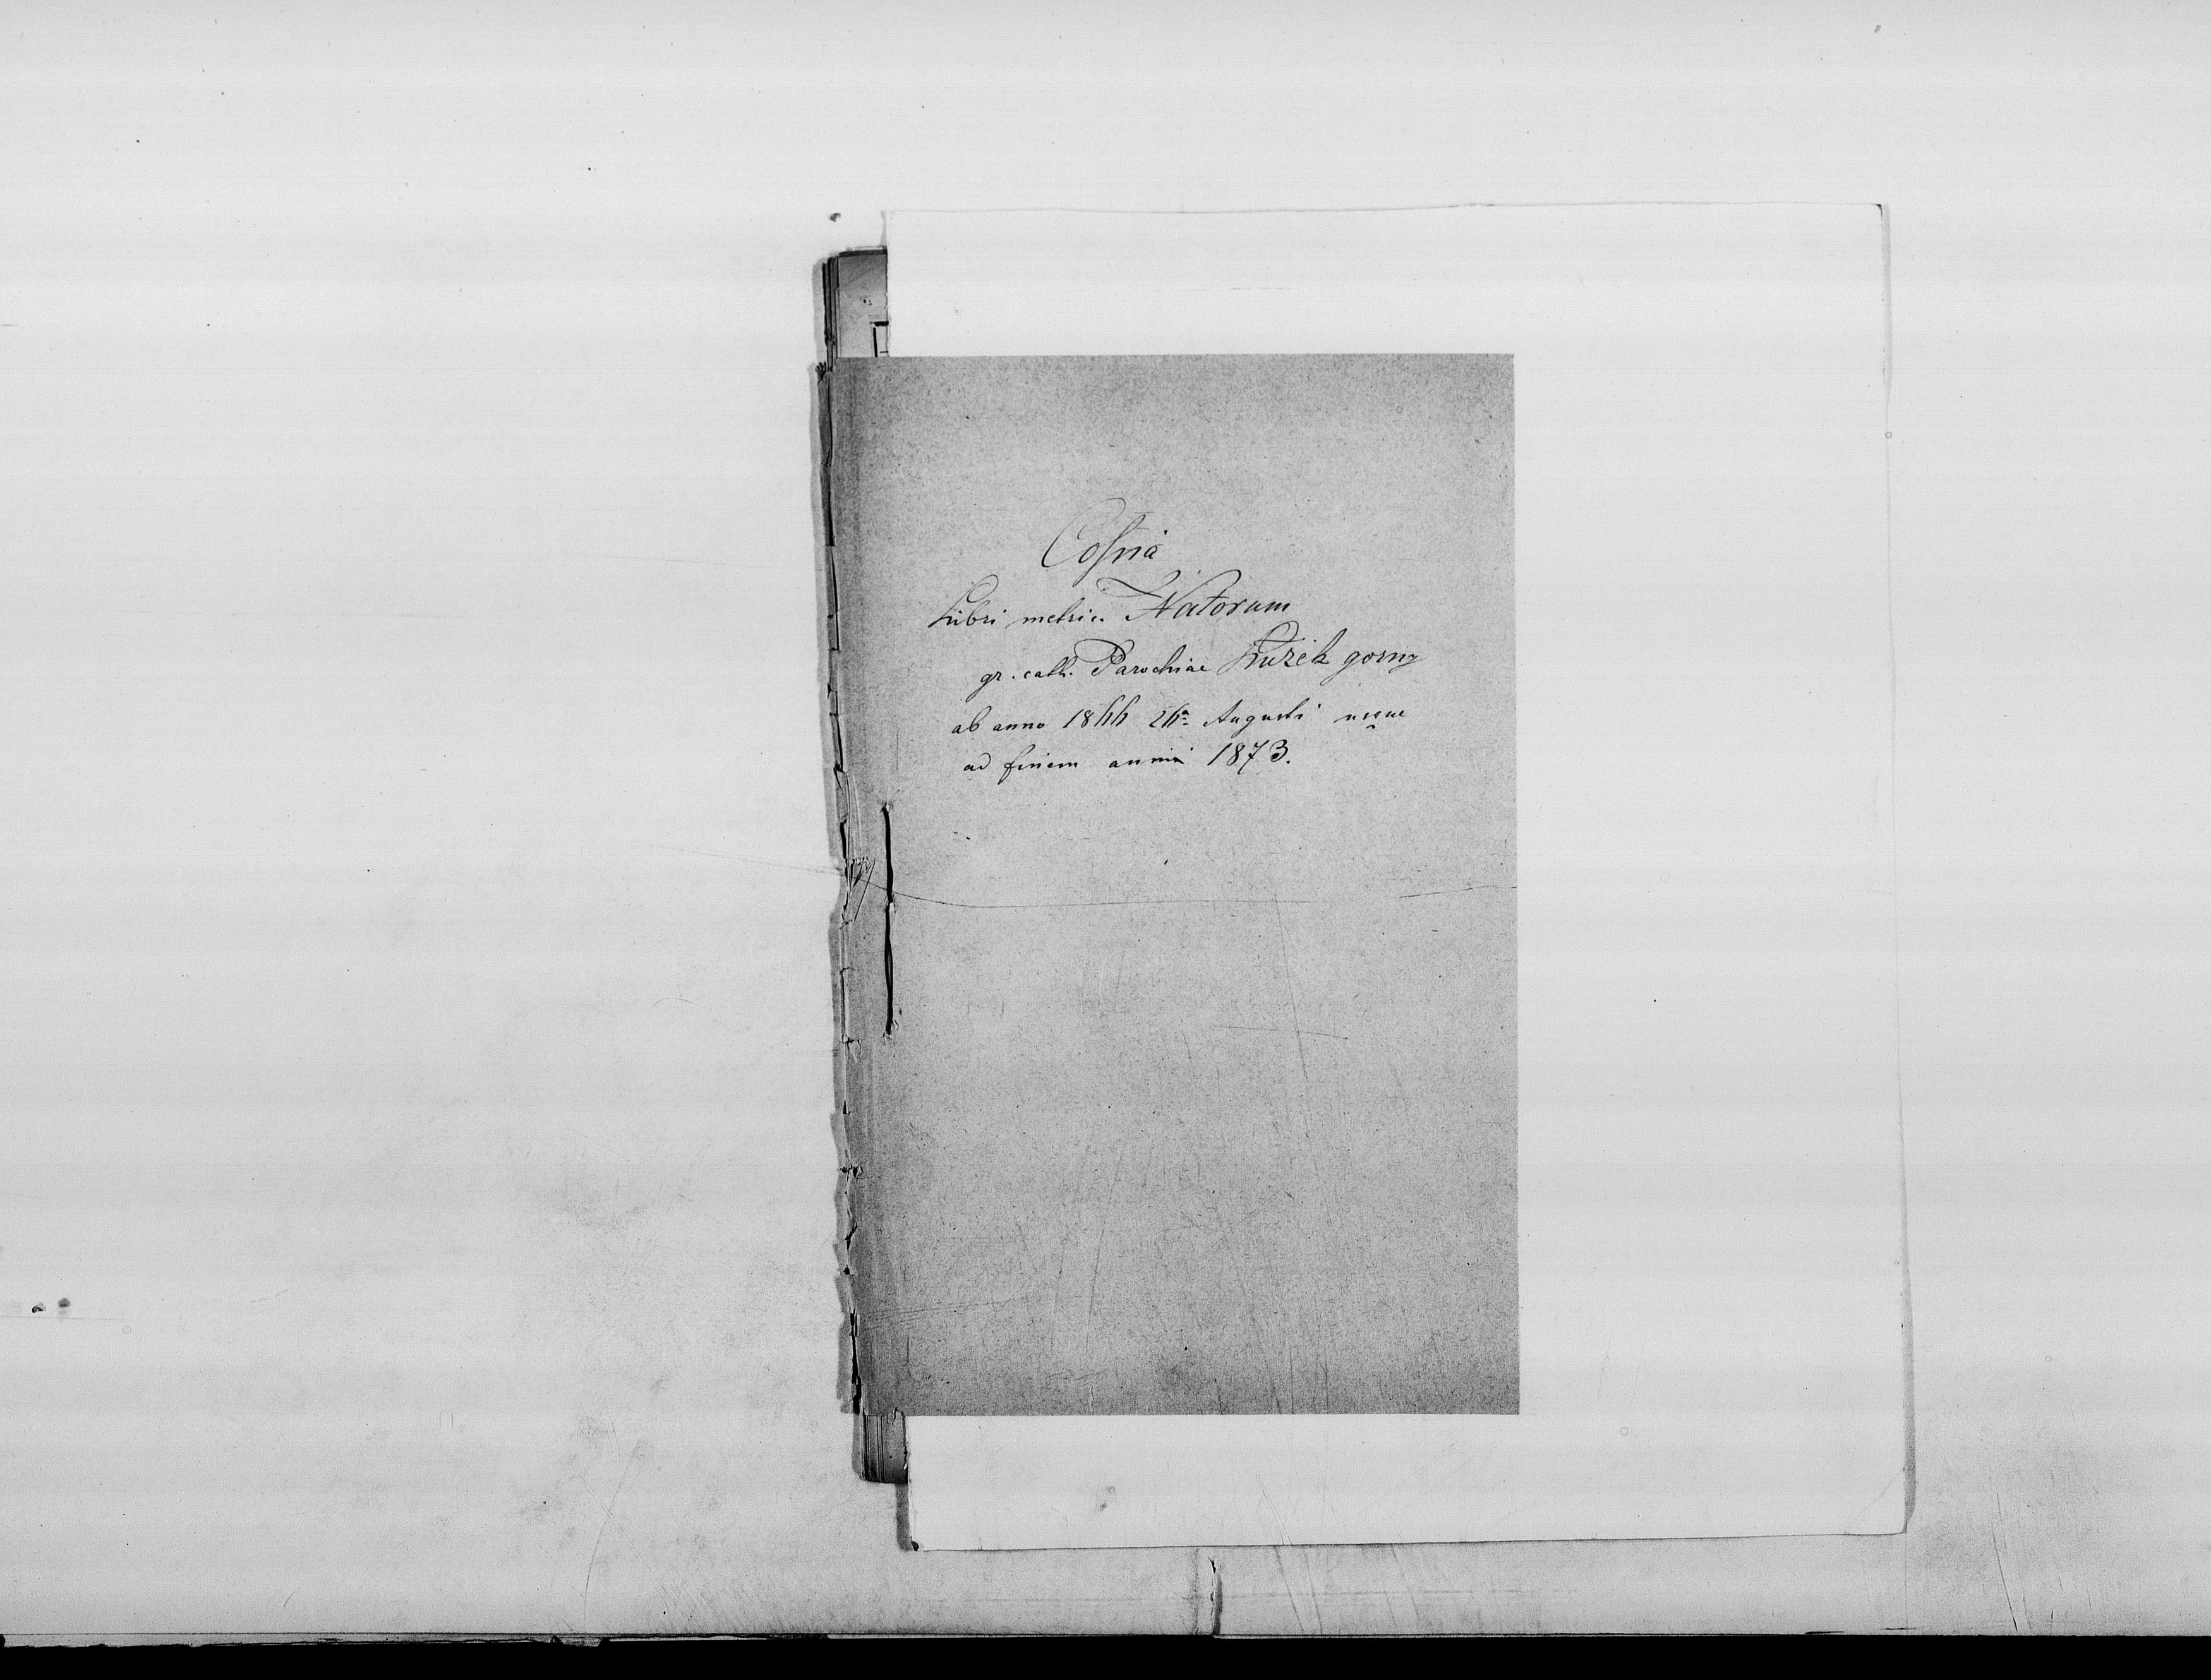 Copia
Libri metric. Natorum
gr. cath. Parochiae Łużek gorny
ab anno 1844 24a Augusti usque
ad finem anni 1873.